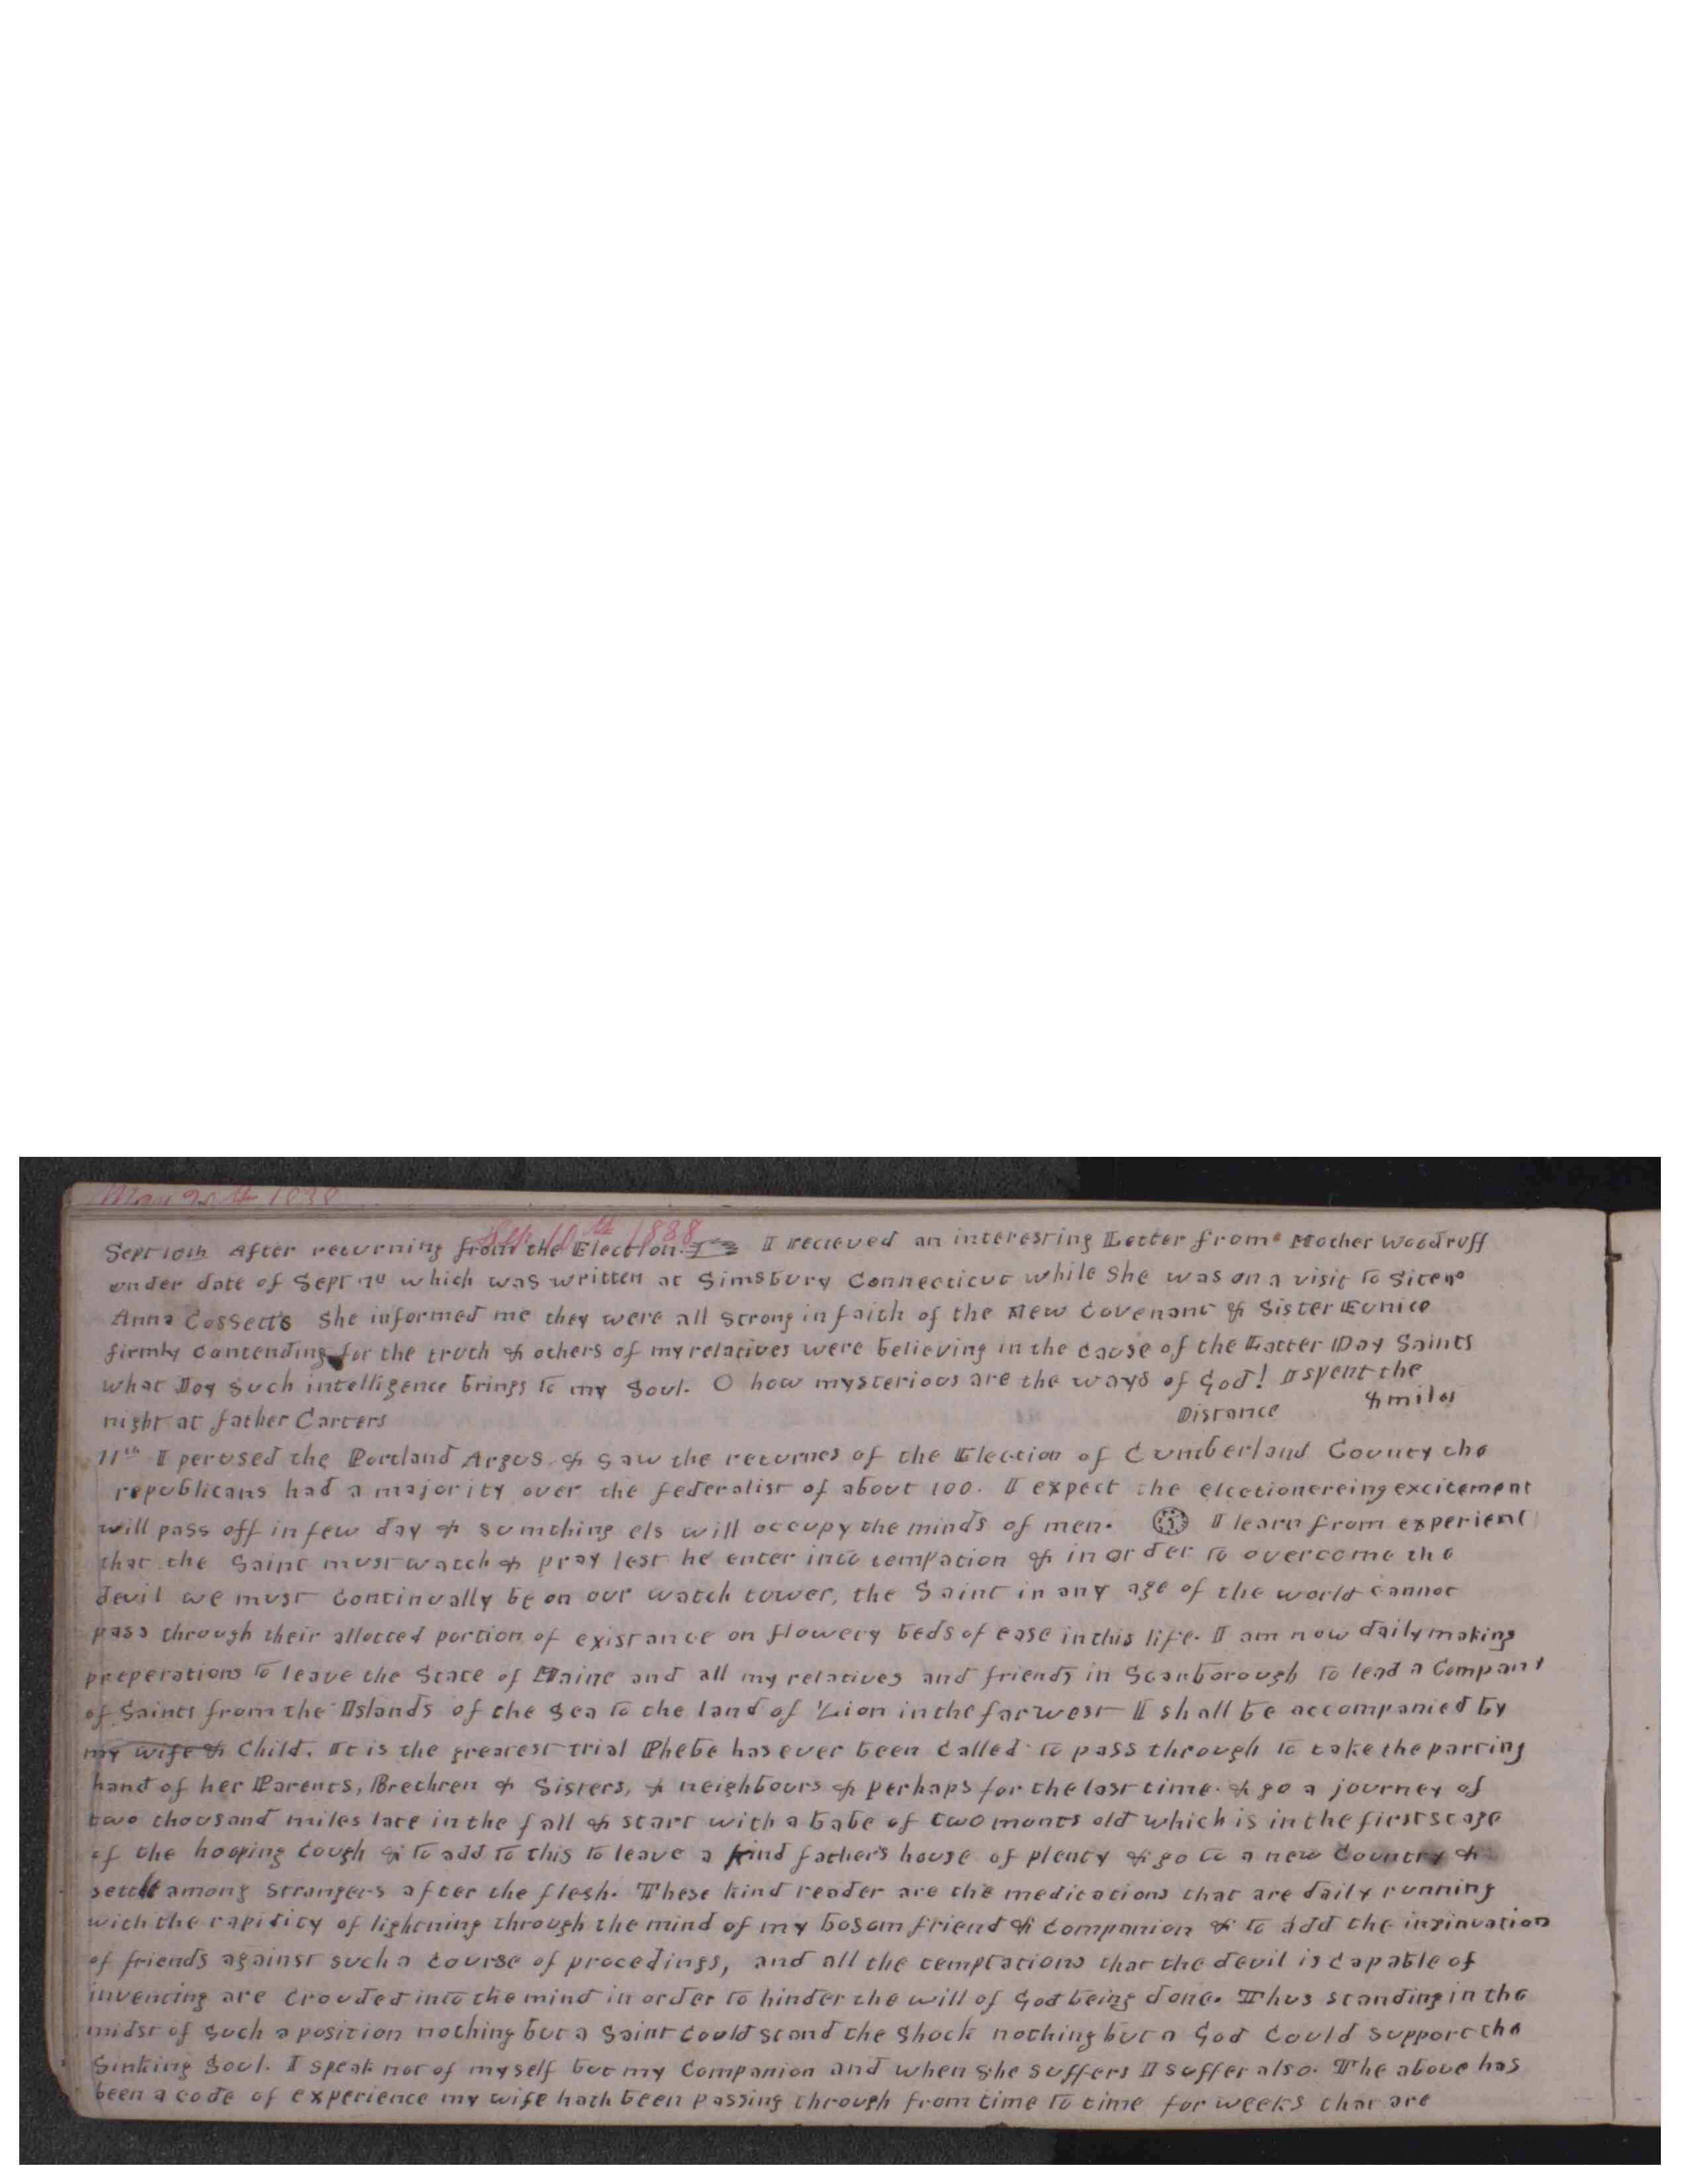 May 25th 1838
Sep. 10th 1838
Sept 10th After returning from the Election. I recieved an interesting Letter from Mother Woodruff
under date of Sept which was written at Simsbury Connecticut while She was on a visit to
Anna Cossetts She informed me they were all Strong in faith of the New Covenant & Sister Eunice
firmly contending for the truth & others of my relatives were believing in the cause of the Latter Day Saints
what Joy such intelligence brings to my Soul. O how mysterious are the ways of God! I spent the
night at father Carters Distance 4 miles
11th I perused the Portland Argus & saw the returnes of the Election of Cumberland County the
republicans had a majority over the federalist of about 100. I expect the elcetionereing excitement
will pass off in few day & sumthing els will occupy the minds of men. I learn from experient
that the Saint must watch & pray lest he enter into tempation & in order to overcome the
devil we must continually be on our watch tower, the Saint in any age of the world cannot
pass through their allotted portion of existance on flowery beds of ease in this life. I am now daily making
preperations to leave the State of Maine and all my relatives and friends in Scarborough to lead a Company
of Saints from the Islands of the Sea to the land of Zion in the far west I shall be accompanied by
my wife & Child. It is the greatest trial Phebe has ever been called to pass through to take the parting
hand of her Parents, Brethren & Sisters, & neighbours & perhaps for the last time. & go a journey of
two thousand miles late in the fall & start with a babe of two monts old which is in the first stage
of the hooping cough & to add to this to leave a kind father's house of plenty & go to a new Country &
settle among strangers after the flesh. These kind reader are the meditations that are daily running
with the rapidity of lightning through the mind of my bosom friend & companion & to add the insinuation
of friends against such a course of procedings, and all the temptations that the devil is capable of
inventing are crouded into the mind in order to hinder the will of God being done. Thus standing in the
midst of such a position nothing but a Saint could stand the shock nothing but a God could support the
Sinking Soul. I speak not of myself but my Companion and when she suffers I suffer also. The above has
been a code of experience my wife hath been passing through from time to time for weeks that are